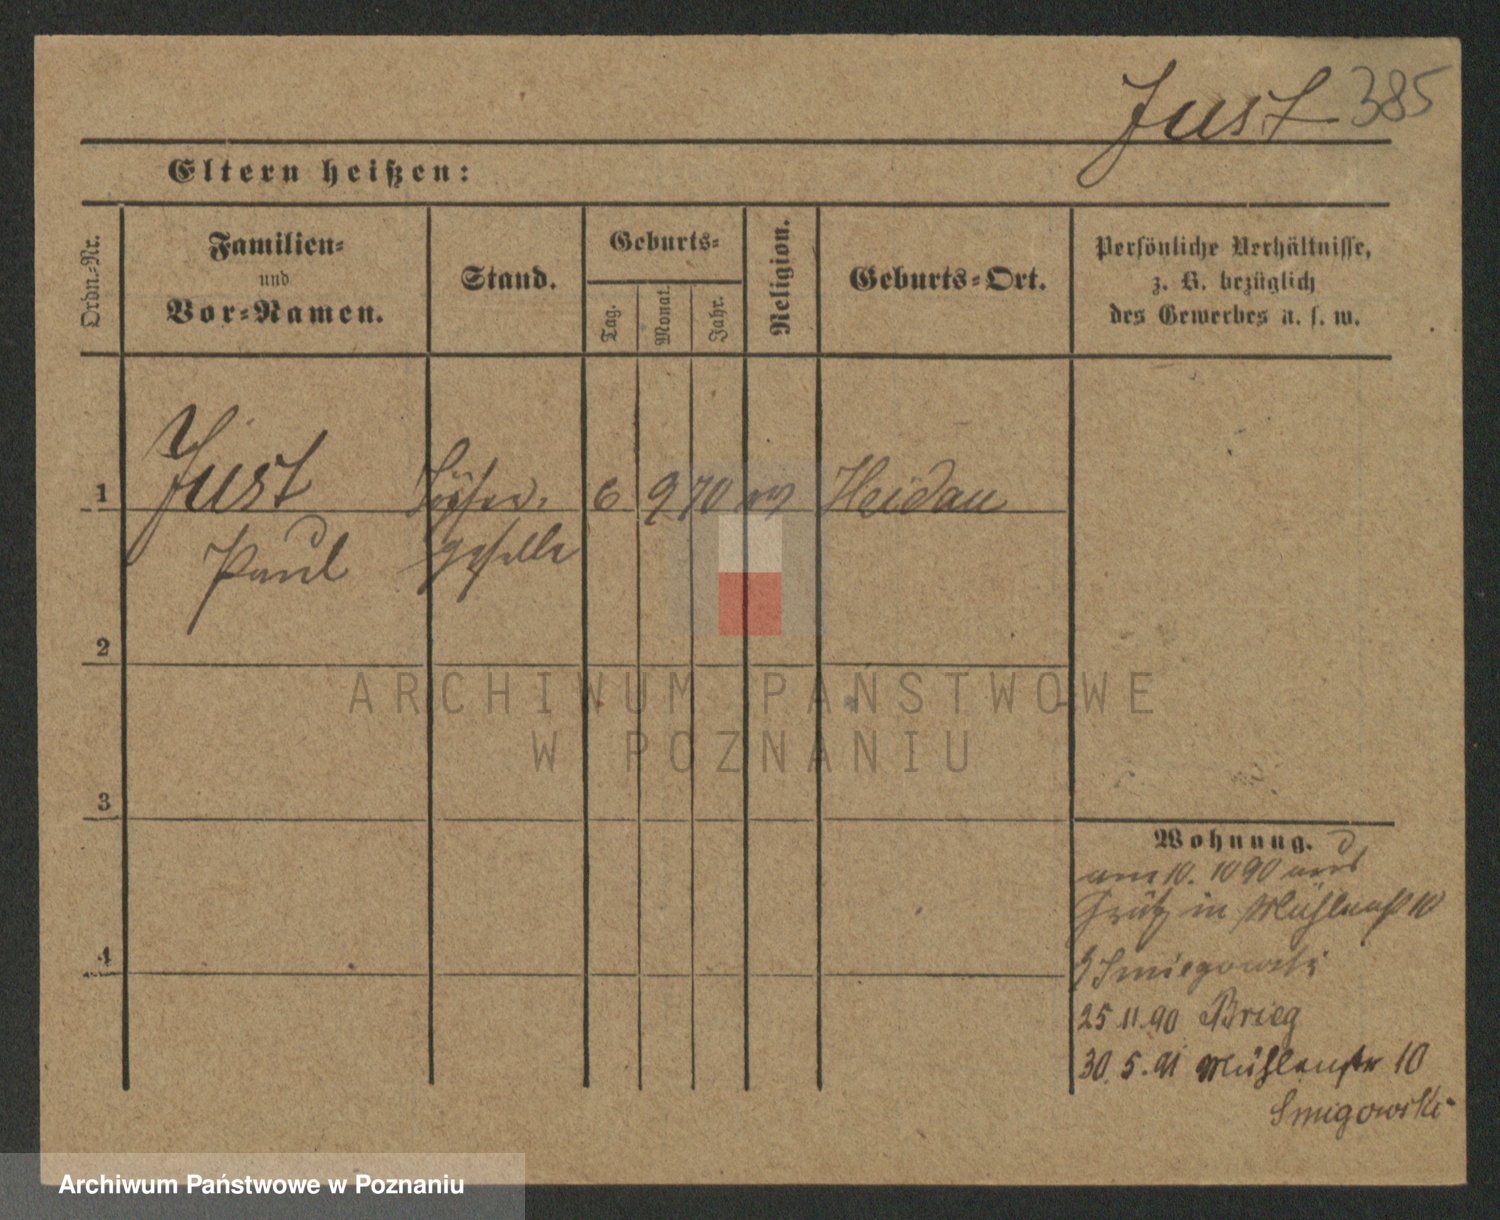 Just 385
Eltern heißen:
Ordn.-Nr.
Familien-
und
Vor-Namen.
Stand.
Geburts-
Tag.
Monat.
Jahr.
Religion.
Geburts-Ort.
Persönliche Verhältnisse,
z. B. bezüglich
des Gewerbes u. s. w.
1 Just Töpfer- 6 9 70 ev Heidau
Paul geselle
2
3
4
ARCHIWUM PAŃSTWOWE
W POZNANIU
Wohnung.
am 10. 10 90 aus
Grätz in Mühlenst 10
Smiegowski
25 11.90 Brieg
30.5.91 Mühlenstr 10
Smigowski
Archiwum Państwowe w Poznaniu